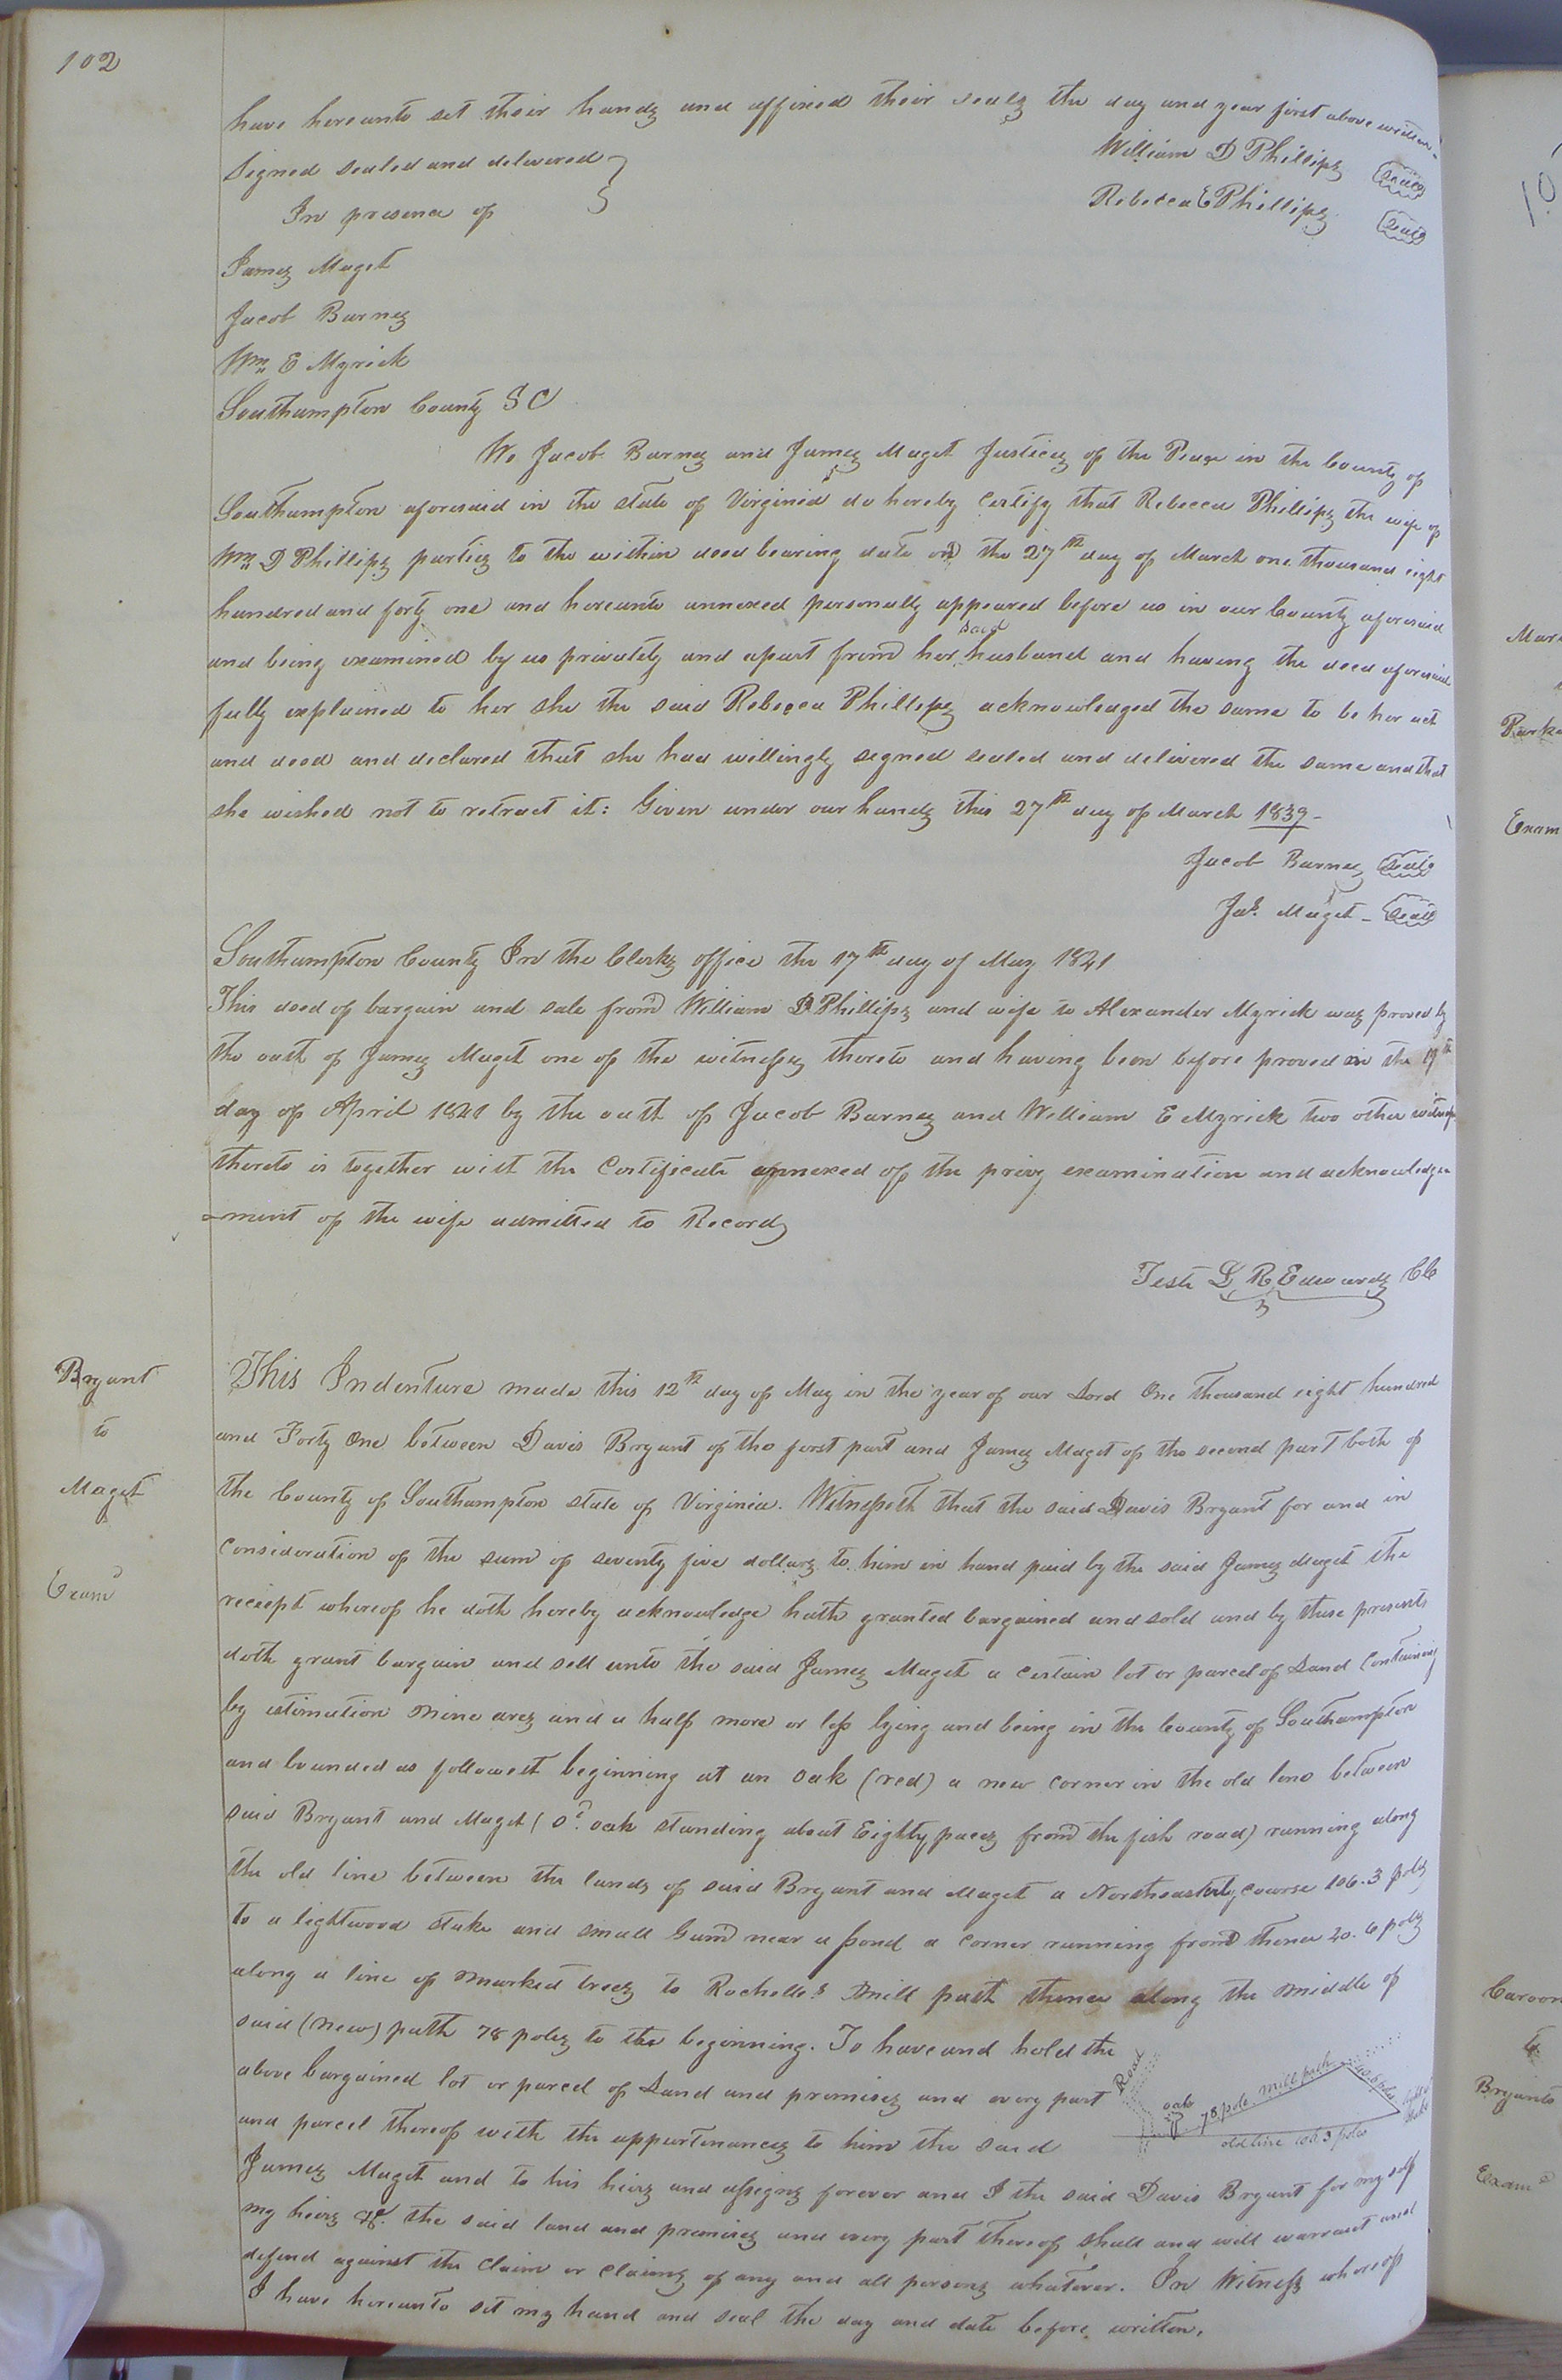 102
have hereunto set their hands and affixed their seals the day and year first above written.
Signed sealed and delivered
In presence of
William D Phillips seal
Rebecca E Phillips seal
James Maget
Jacob Barnes
Wm E Myrick
Southampton County SC
We Jacob Barnes and James Maget Justices of the Peace in the County of
Southampton aforesaid in the state of Virginia do hereby certify that Rebecca Phillips the wife of
Wm D Phillips parties to the within deed bearing date on the 27th day of March one thousand eight
hundred and forty one and hereunto annexed personally appeared before us in our County aforesaid
and being examined by us privately and apart from her said husband and having the deed aforesaid
fully explained to her she the said Rebecca Phillips acknowledged the same to be her act
and deed and declared that she had willingly signed sealed and delivered the same and that
she wished not to retract it: Given under our hands this 27th day of March 1839 -
Jacob Barnes seal
Jas. Maget - seal
Southampton County In the Clerks office the 17th day of May 1841
This deed of bargain and sale from William D Phillips and wife to Alexander Myrick was proved by
the oath of James Maget one of the witnesses thereto and having been before proved in the 19th
day of April 1841 by the oath of Jacob Barnes and William E Myrick two other witnesses
thereto is together with the Certificate annexed of the privy examination and acknowledge
-ment of the wife admitted to Record
Teste L R Edwards CC
Bryant
to
Maget
Examd
This Indenture made this 12th day of May in the year of our Lord One thousand eight hundred
and Forty One between Davis Bryant of the first part and James Maget of the second part both of
the County of Southampton state of Virginia. Witnesseth that the said Davis Bryant for and in
consideration of the sum of seventy five dollars to him in hand paid by the said James Maget the
reciept whereof he doth hereby acknowledge hath granted bargained and sold and by these presents
doth grant bargain and sell unto the said James Maget a certain lot or parcel of Land Containing
by estimation Nine acres and a half more or less lying and being in the County of Southampton
and bounded as followeth beginning at an oak (red) a new corner in the old line between
said Bryant and Maget (sd. oak standing about Eighty paces from the fish road) running along
the old line between the lands of said Bryant and Maget a Northeasterly course 106.3 poles
to a lightwood stake and small Gum near a pond a corner running from thence 20.6 poles
along a line of marked trees to Rochelle's mill path thence along the middle of
said (new) path 78 poles to the beginning. To have and hold the
above bargained lot or parcel of Land and premises and every part
and parcel thereof with the appurtenances to him the said
Road
oak
78 pole mill path
20.6 poles
old line 106.3 poles
James Maget and to his heirs and assigns forever and I the said Davis Bryant for my self
my heirs &c. the said land and premises and every part thereof shall and will warrant and
defend against the claim or claims of any and all persons whatever. In Witness whereof
I have hereunto set my hand and seal the day and date before written.
Exam
Bryants
Examd